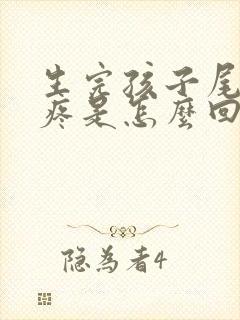 生完孩子尾
疼是怎麼回
隐為者4